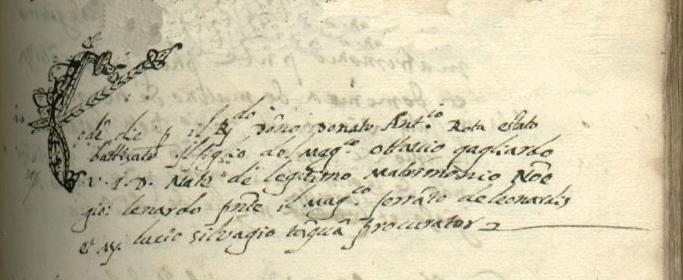 Eodē die p il R.do Dōno Donato Ant.o Rota è stato
battizato il figlio del mag.co ottavio gagliardo
V. I. D. Nato de legitimo matrimonio Noē
gio: lenardo pn̄te il mag.co ferrāto de leonardis
et m. lucio silvagio tāquā procurator